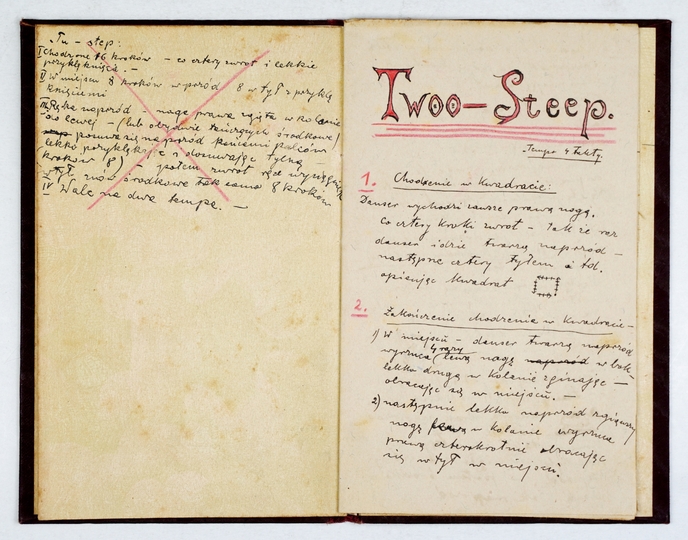 Tu - step:
I Chodzone 16 kroków - co cztery zwrot i lekkie
przyklęknięcie. -
II W miejscu 8 kroków w przód 8 w tył z przyklę
knięciami
III Ręka naprzód - noga prawa zgięta w kolanie
lewej - (lub obydwie
naprzód końcami palców
lekko przyklękając i dosuwając tylną
kroków 8) - potem zwrot ręce
V Tył znów środkowe tak samo 8 kroków
IV Walc na dwa tempa. -
Twoo-Steep.
Tempo 4 takty.
1. Chodzenie w Kwadracie:
Danser wychodzi zawsze prawą nogą.
Co cztery kroki zwrot - tak że raz
danser idzie twarzą naprzód -
następne cztery tyłem i td.
opisując kwadrat
2. Zakończenie chodzenia w Kwadracie -
1) W miejscu - danser twarzą naprzód
4 razy
wyrzuca lewą nogę naprzód w bok
lekko drugą w kolanie zginając -
obracając się w miejscu. -
2) następnie lekko naprzód zgiąwszy
nogę lewą w kolanie wyrzuca
prawą czterokrotnie obracając
się w tył w miejscu.